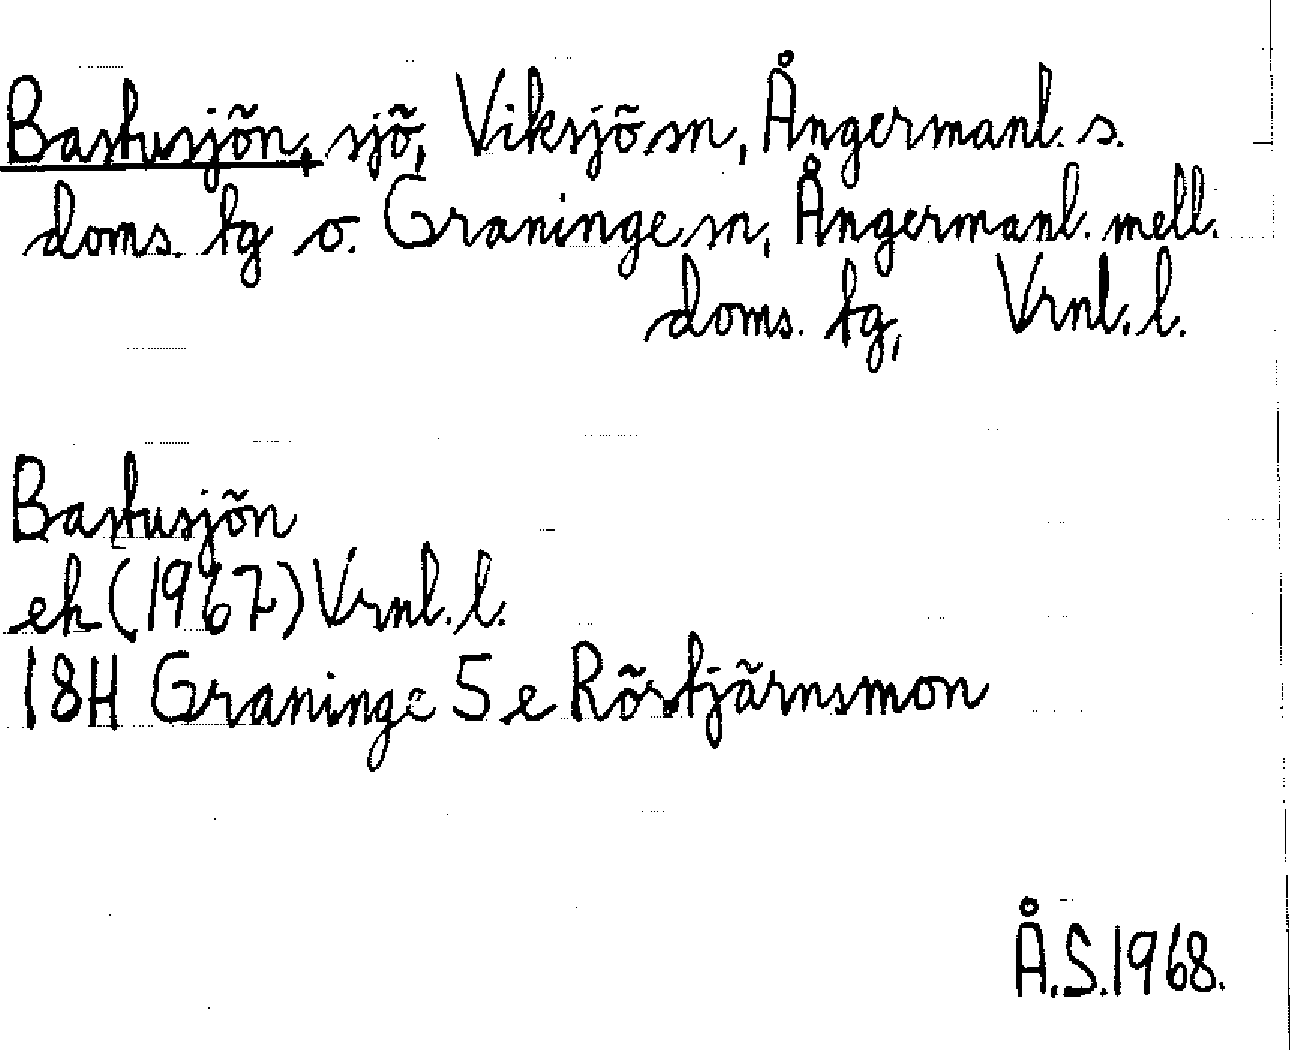 Bastusjön, sjö, Viksjö sn, Ångermanl. s.
doms. tg o. Graninge sn, Ångermanl. mell.
doms. tg, Vrnl. l.
Bastusjön
ek (1967) Vrnl. l.
18H Graninge 5 e Rörtjärnsmon
Å.S. 1968.